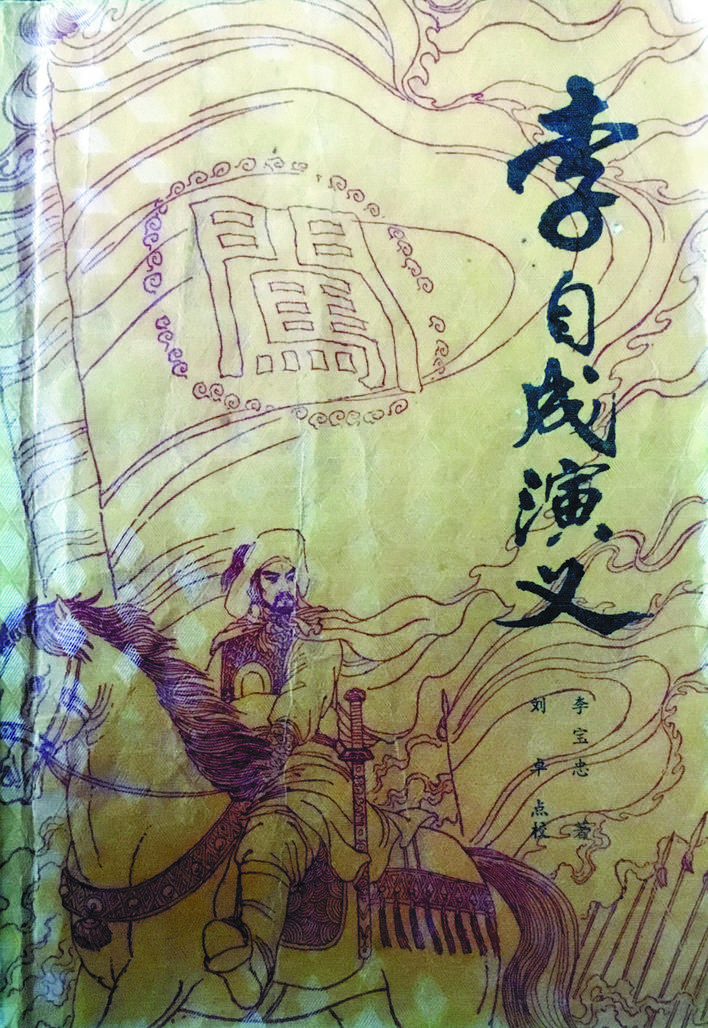 李自成演义
李宝忠 著
刘卓 点校
闖